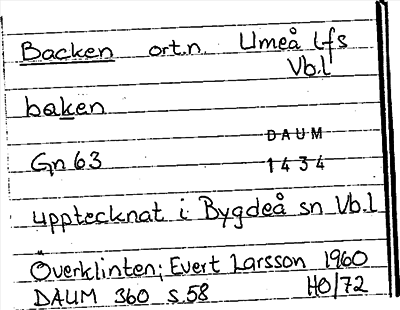 Backen ort.n. Umeå lfs
Vb.l
baken
DAUM
Gn 63
1434
upptecknat i Bygdeå sn Vb.l
Överklinten; Evert Larsson 1960
DAUM 360 s.58 HO/72